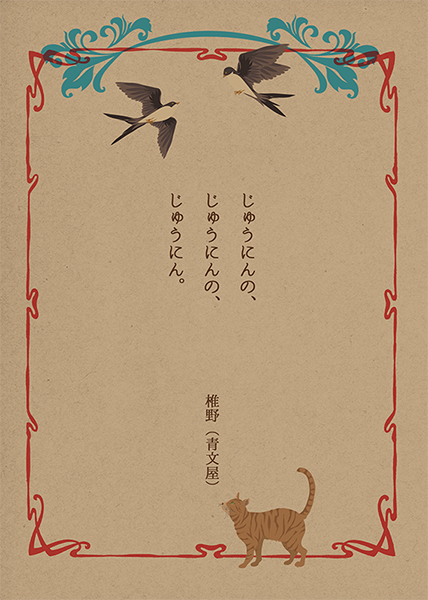 じゅうにんの、
じゅうにんの、
じゅうにん。
椎野（青文屋）